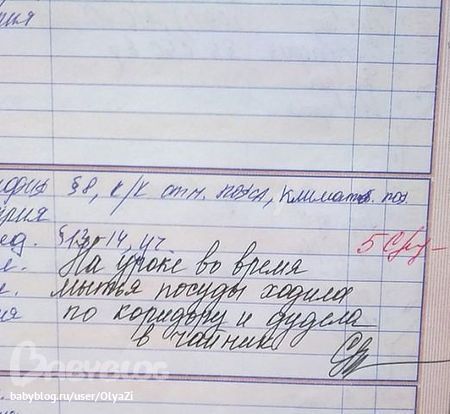 §8, к/к отм. пояса, климат. поя.
рия
ед. §13-14, уч
5
На уроке во время
мытья посуды ходила
по коридору и дудела
в чайник
BABYBLOG
babyblog.ru/user/OlyaZi